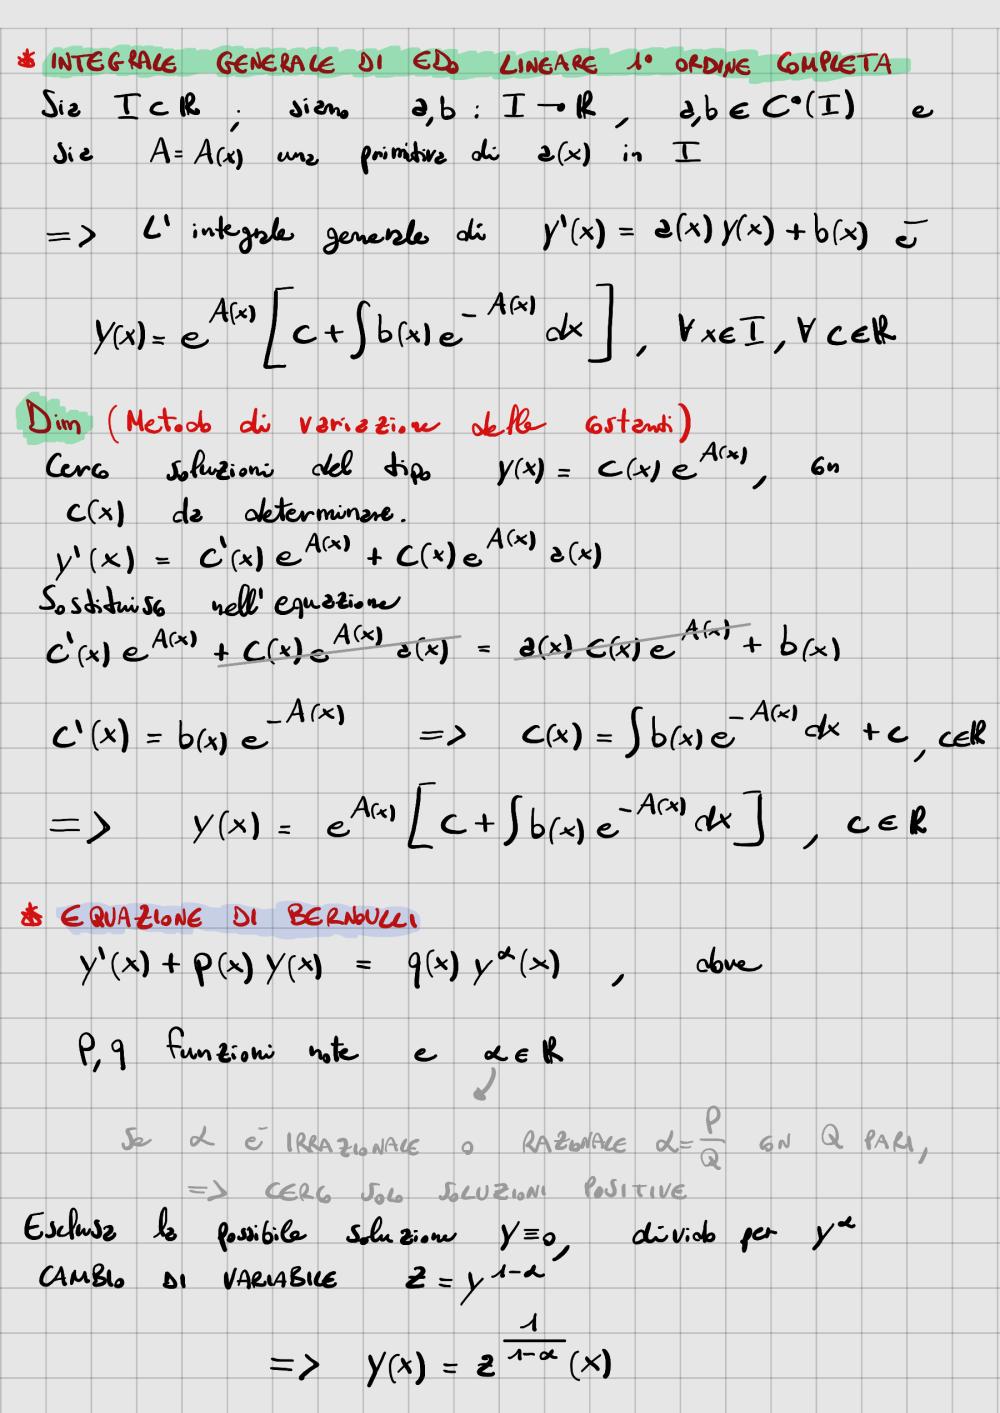 * INTEGRALE GENERALE DI EDO LINEARE 1° ORDINE COMPLETA
Sia I ⊂ ℝ ; siano a,b : I → ℝ , a,b ∈ C°(I) e
sia A = A(x) una primitiva di a(x) in I
=> L' integrale generale di y'(x) = a(x) y(x) + b(x) è
y(x) = e^{A(x)} [ c + ∫ b(x) e^{-A(x)} dx ] , ∀ x ∈ I , ∀ c ∈ ℝ
Dim (Metodo di variazione delle costanti)
Cerco soluzioni del tipo y(x) = c(x) e^{A(x)} , con
c(x) da determinare.
y'(x) = c'(x) e^{A(x)} + c(x) e^{A(x)} a(x)
Sostituisco nell' equazione
c'(x) e^{A(x)} + c(x) e^{A(x)} a(x) = a(x) c(x) e^{A(x)} + b(x)
c'(x) = b(x) e^{-A(x)} => c(x) = ∫ b(x) e^{-A(x)} dx + c , c∈ℝ
=> y(x) = e^{A(x)} [ c + ∫ b(x) e^{-A(x)} dx ] , c ∈ ℝ
* EQUAZIONE DI BERNOULLI
y'(x) + p(x) y(x) = q(x) y^α(x) , dove
p, q funzioni note e α ∈ ℝ
Se α è IRRAZIONALE o RAZIONALE α = P/Q CON Q PARI,
=> CERCO SOLO SOLUZIONI POSITIVE
Esclusa la possibile soluzione y ≡ 0, divido per y^α
CAMBIO DI VARIABILE z = y^{1-α}
=> y(x) = z^{1/(1-α)}(x)